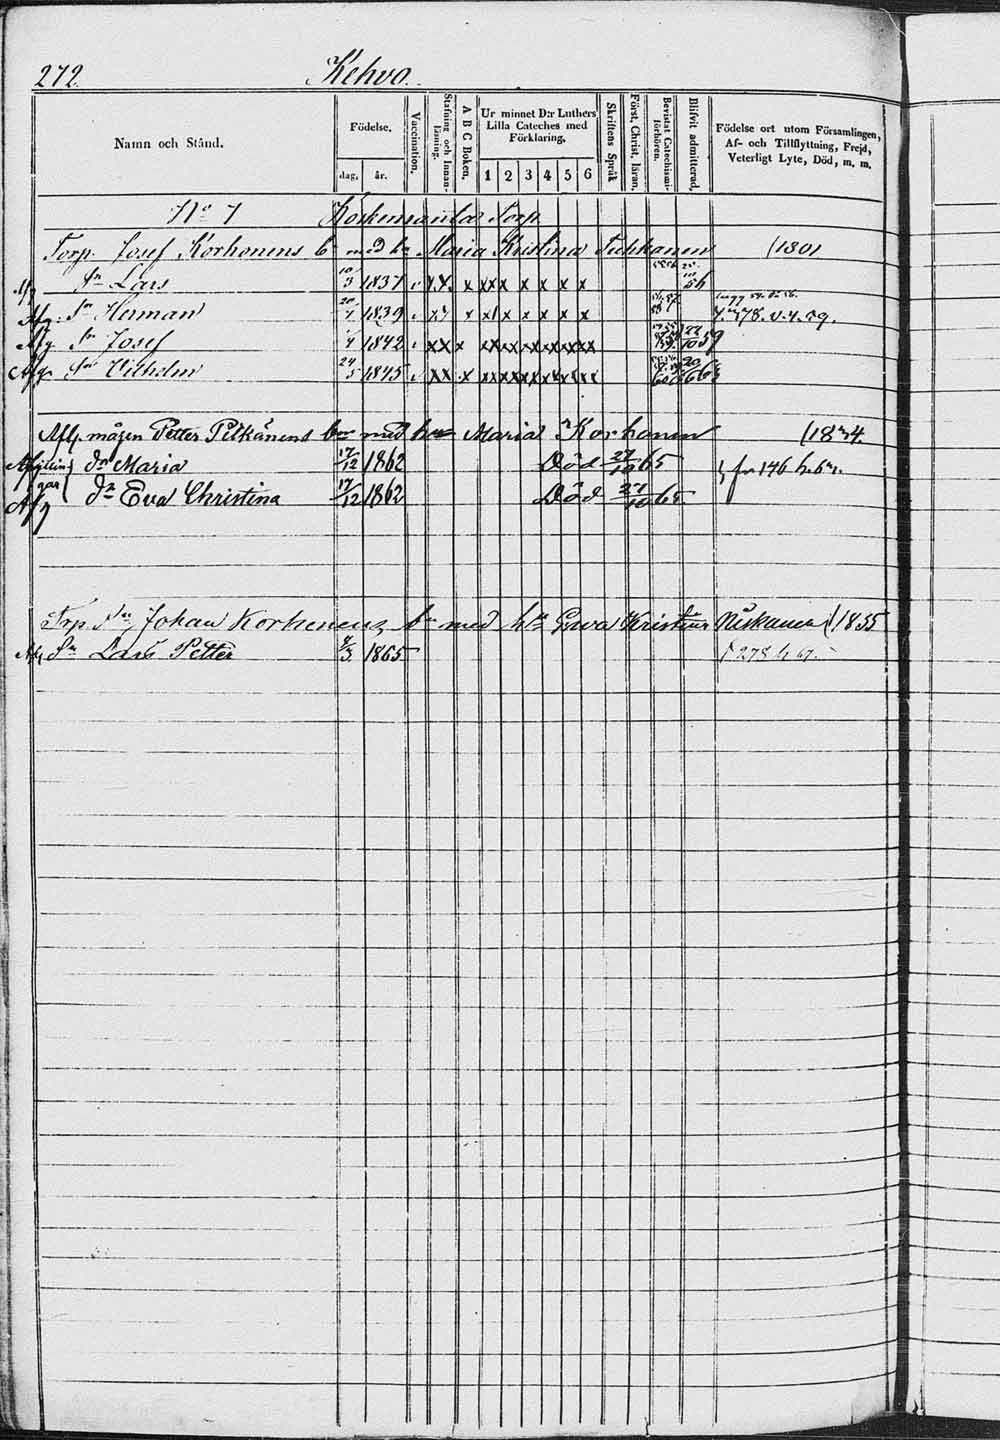 272. Kehvo.
Namn och Stånd. Födelse. dag. år. Vaccination. Stafning och Innanläsning. A B C Boken. Ur minnet D:r Luthers Lilla Cateches med Förklaring. 1 2 3 4 5 6 Skriftens Språk Först. Christ. läran. Bevistat Catechismi-förhören. Blifvit admitterad. Födelse ort utom Församlingen, Af- och Tillflyttning, Frejd, Veterligt Lyte, Död, m. m.
No 7 Torp
Torp. Josef Korhonens bn med hu Maria Kristina (1801
Sn Lars 10/3 1837 v x x x x x x x x 56
Afg: Sn Herman 20/7 1839 x x x x x x
Afg Sn Josef 1842 x x x x x x x x x 22/10 59
Afg Sn Vilhelm 24/5 1845 v x x x x x x x x x
Afl. mågen Petter Pitkänens bn med hu Maria Korhonen (1834
Afg Dr Maria 17/12 1862 Död 27/10 65 fr 146
Afg Dr Eva Christina 17/12 1862 Död 27/10 65
Trp. Sn Johan Korhonens bn med hu Ewa Kristina Niskanen (1835
Afg Sn Lars Petter 1865 278 h 67.